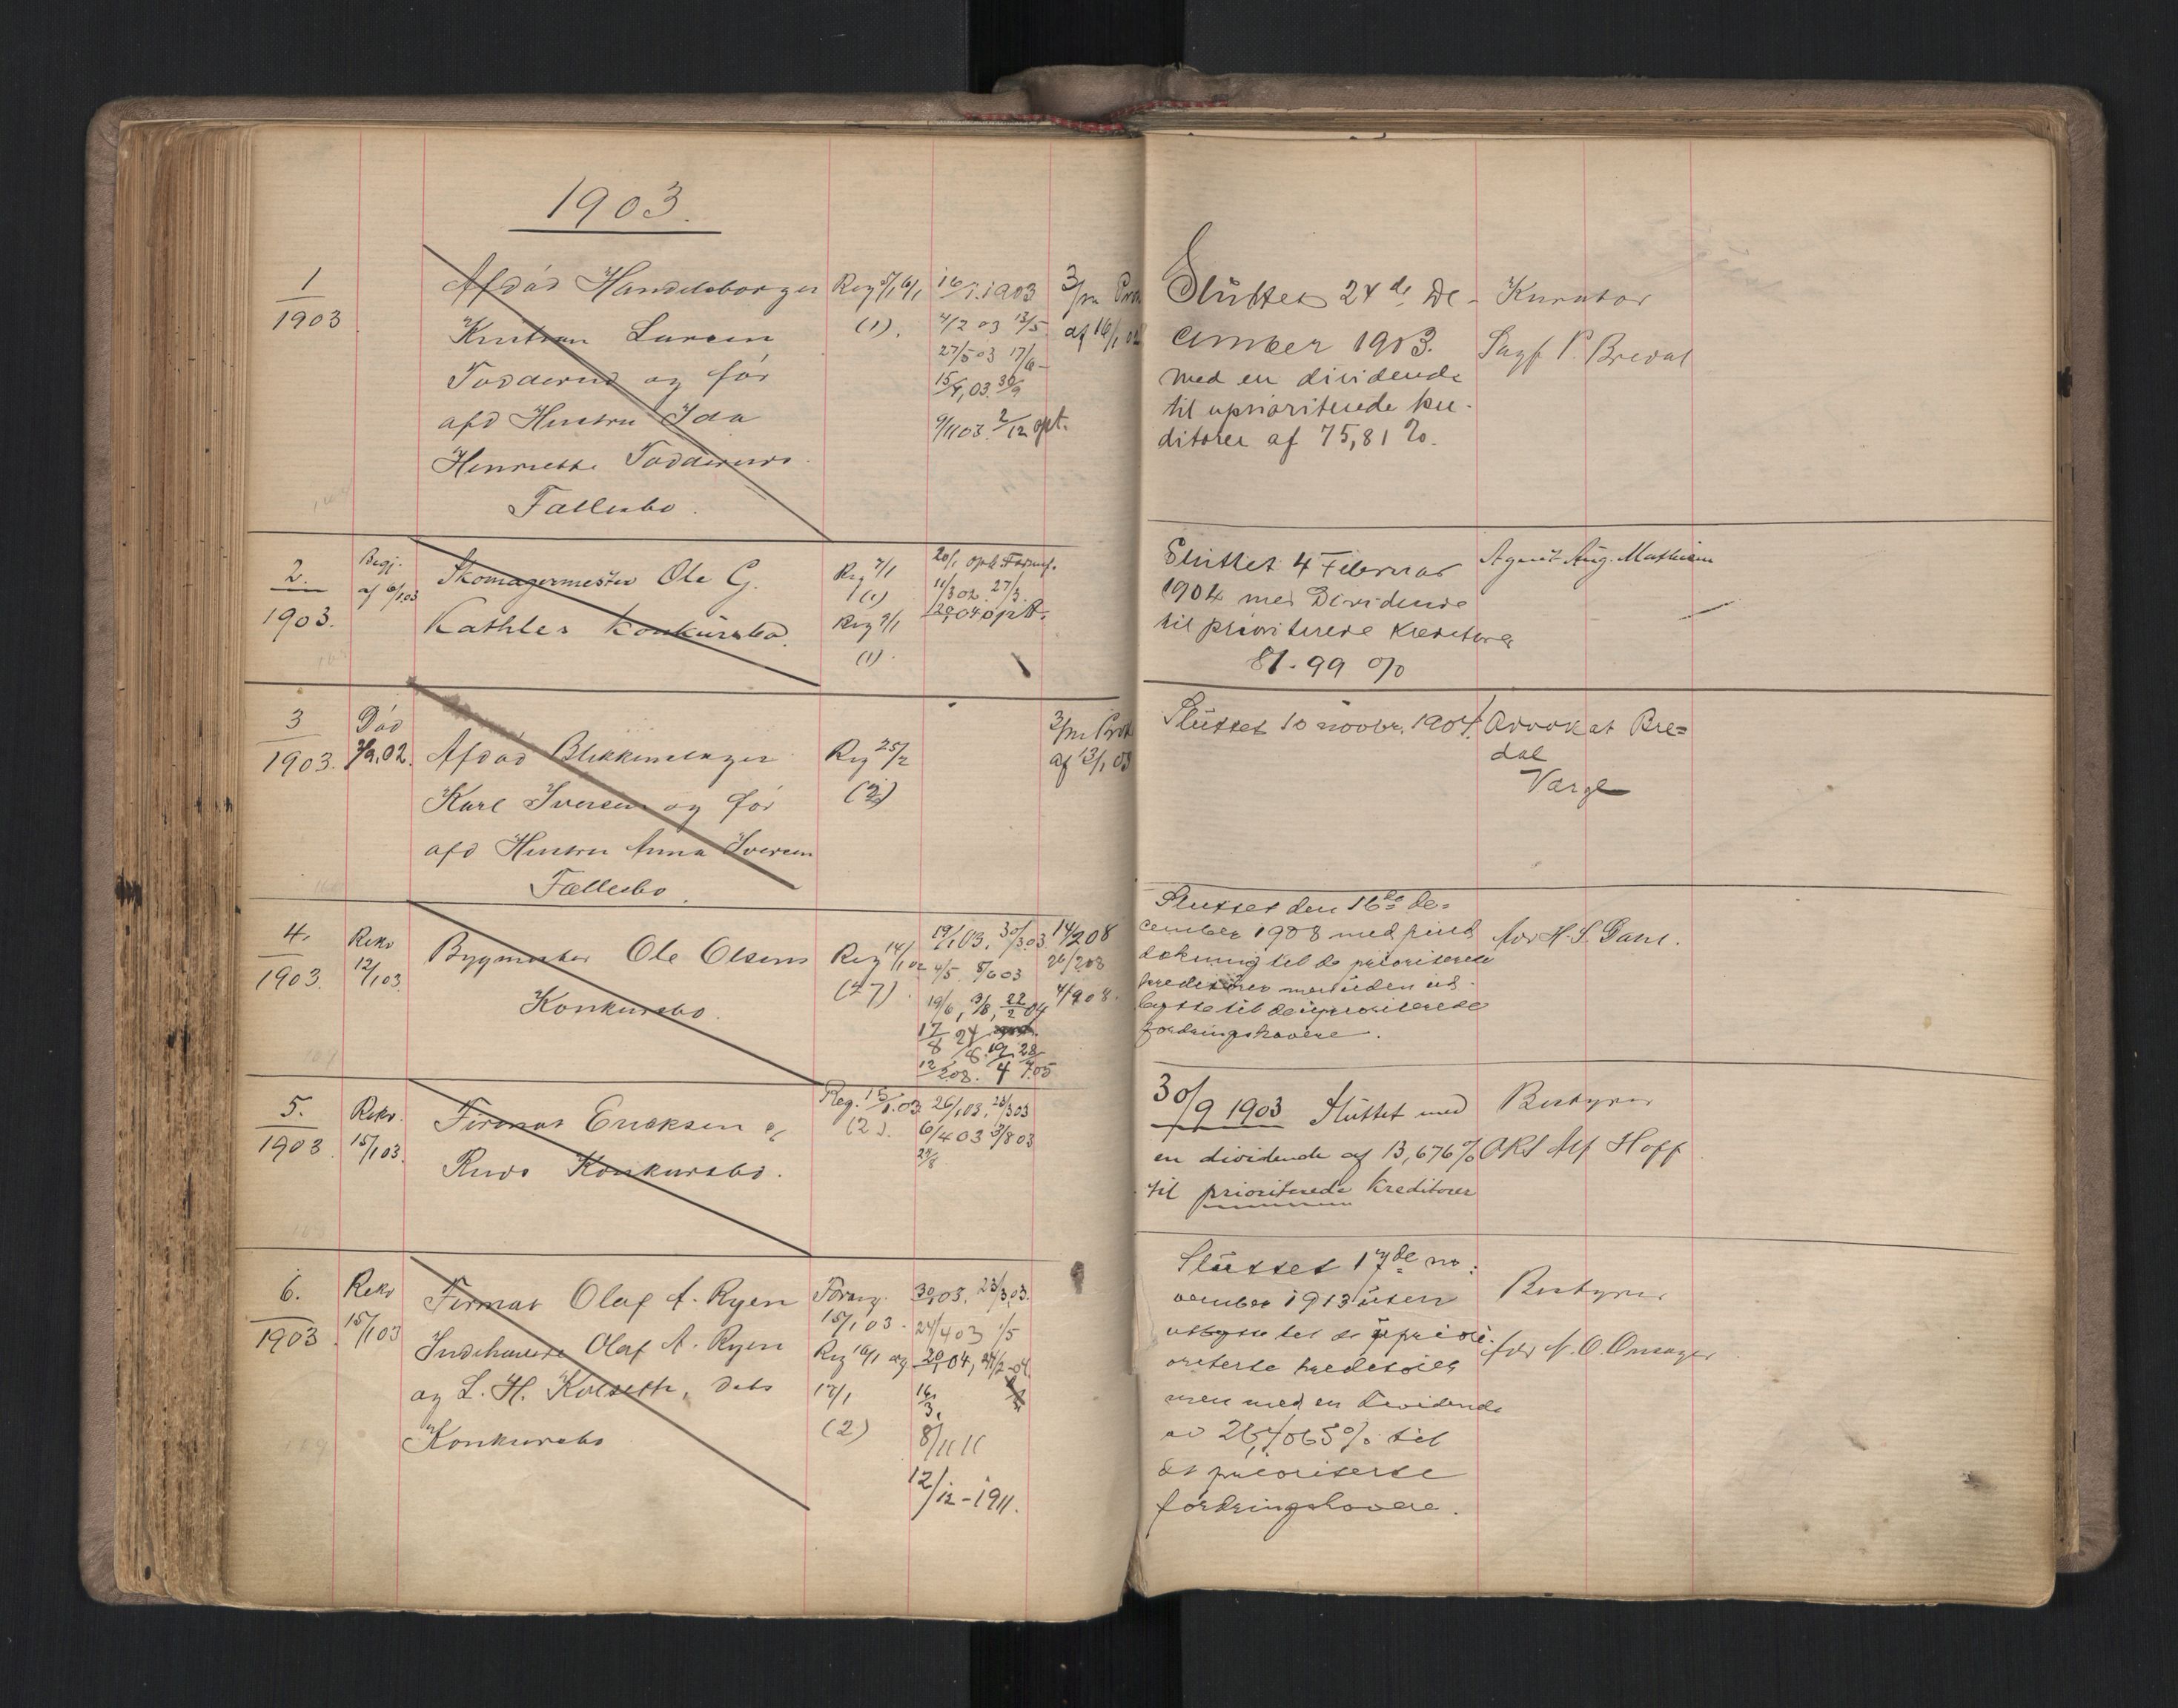 1903.
1
1903
Afdød Handelsborger
Knutsen Larsen
Todderud og før
afd Hustru Ida
Henriette Todderuds
Fællesbo.
Reg 5/1 6/1
(1).
16/1.1903
4/2 03 13/5
27/5 03 17/6
15/9,03. 30/9
9/11 03. 2/12 opt.
3/m Prok
af 16/1 03
Sluttet 24de De-
cember 1903.
med en dividende
til uprioriterede kre-
ditorer af 75,81 %.
Kurator
Sagf P. Bredal
2.
1903.
Begj.
af 6/1 03
Skomagermester Ole G.
Kathles Konkursbo.
Reg 7/1
(1)
Reg 9/1
(1).
20/1 opt. Formf.
11/3 02. 27/3.
opt.
Sluttet 4 Februar
1904 med Dividende
til prioriterede Kreditorer
81.99 %
Agent Aug. Mathisen
3
1903.
Død
3/9.02.
Afdød Blikkenslager
Karl Iversen og før
afd Hustru Anna Iversen
Fællesbo.
Reg 25/2
(2)
3/m Prok
af 13/1 03
Sluttet 10 novbr. 1904.
Advokat Bre=
dal
Vargl
4.
1903.
Rekv
12/1 03.
Bygmester Ole Olsens
Konkursbo.
Reg 14/1 02
(27).
19/1 03. 30/3 03.
4/5 8/6 03
19/6, 3/8, 22/2 04
17/8 24/8. 19/4 28/7.05
12/2 08.
14/2 08
26/2 08
4/9 08.
Sluttet den 16de de=
cember 1908 med fuld
dækning til de prioriterede
kreditorer men uden ud-
bytte til de uprioriterede
fordringshavere.
Adv H. S. Dahl.
5.
1903.
Rekv.
15/1 03.
Firmat Eriksen &
Ruds Konkursbo.
Reg. 15/1.03
(2).
26/1 03. 23/3 03
6/4 03 3/8 03
24/8
30/9 1903 Sluttet med
en dividende af 13,676 %
til prioriterede Kreditorer
Bestyrer
ORS Alf Hoff
6.
1903.
Rekv
15/1 03
Firmat Olaf A. Ryen
Indehavere Olaf A. Ryen
og L. H. Kolseth, dets
Konkursbo
Foranz.
15/1 03.
Reg 16/1 og
17/1
(2)
30/1 03. 23/3 03.
24/4 03 1/5
20/1 04, 24/2-04.
16/3.
8/11 11
12/12-1911.
Sluttet 17de no=
vember 1913 uten
utbytte til de upri-
oriterte kreditorer
men med en Dividende
av 26,4065 % til
de prioriterte
fordringshavere.
Bestyrer
Adv N. O. Omsager